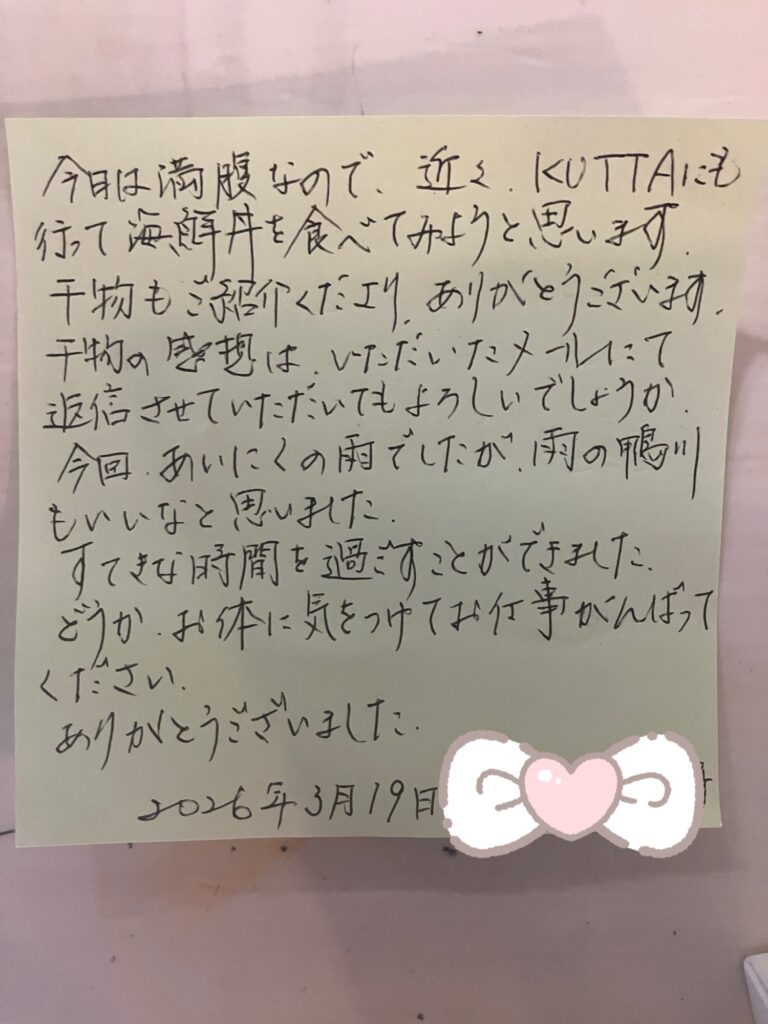 今日は満腹なので、近く、KUTTAにも
行って海鮮丼を食べてみようと思います。
干物もご紹介くださり、ありがとうございます。
干物の感想は、いただいたメールにて
返信させていただいてもよろしいでしょうか。
今回、あいにくの雨でしたが、雨の鴨川
もいいなと思いました。
すてきな時間を過ごすことができました。
どうか、お体に気をつけてお仕事がんばって
ください。
ありがとうございました。
2026年3月19日